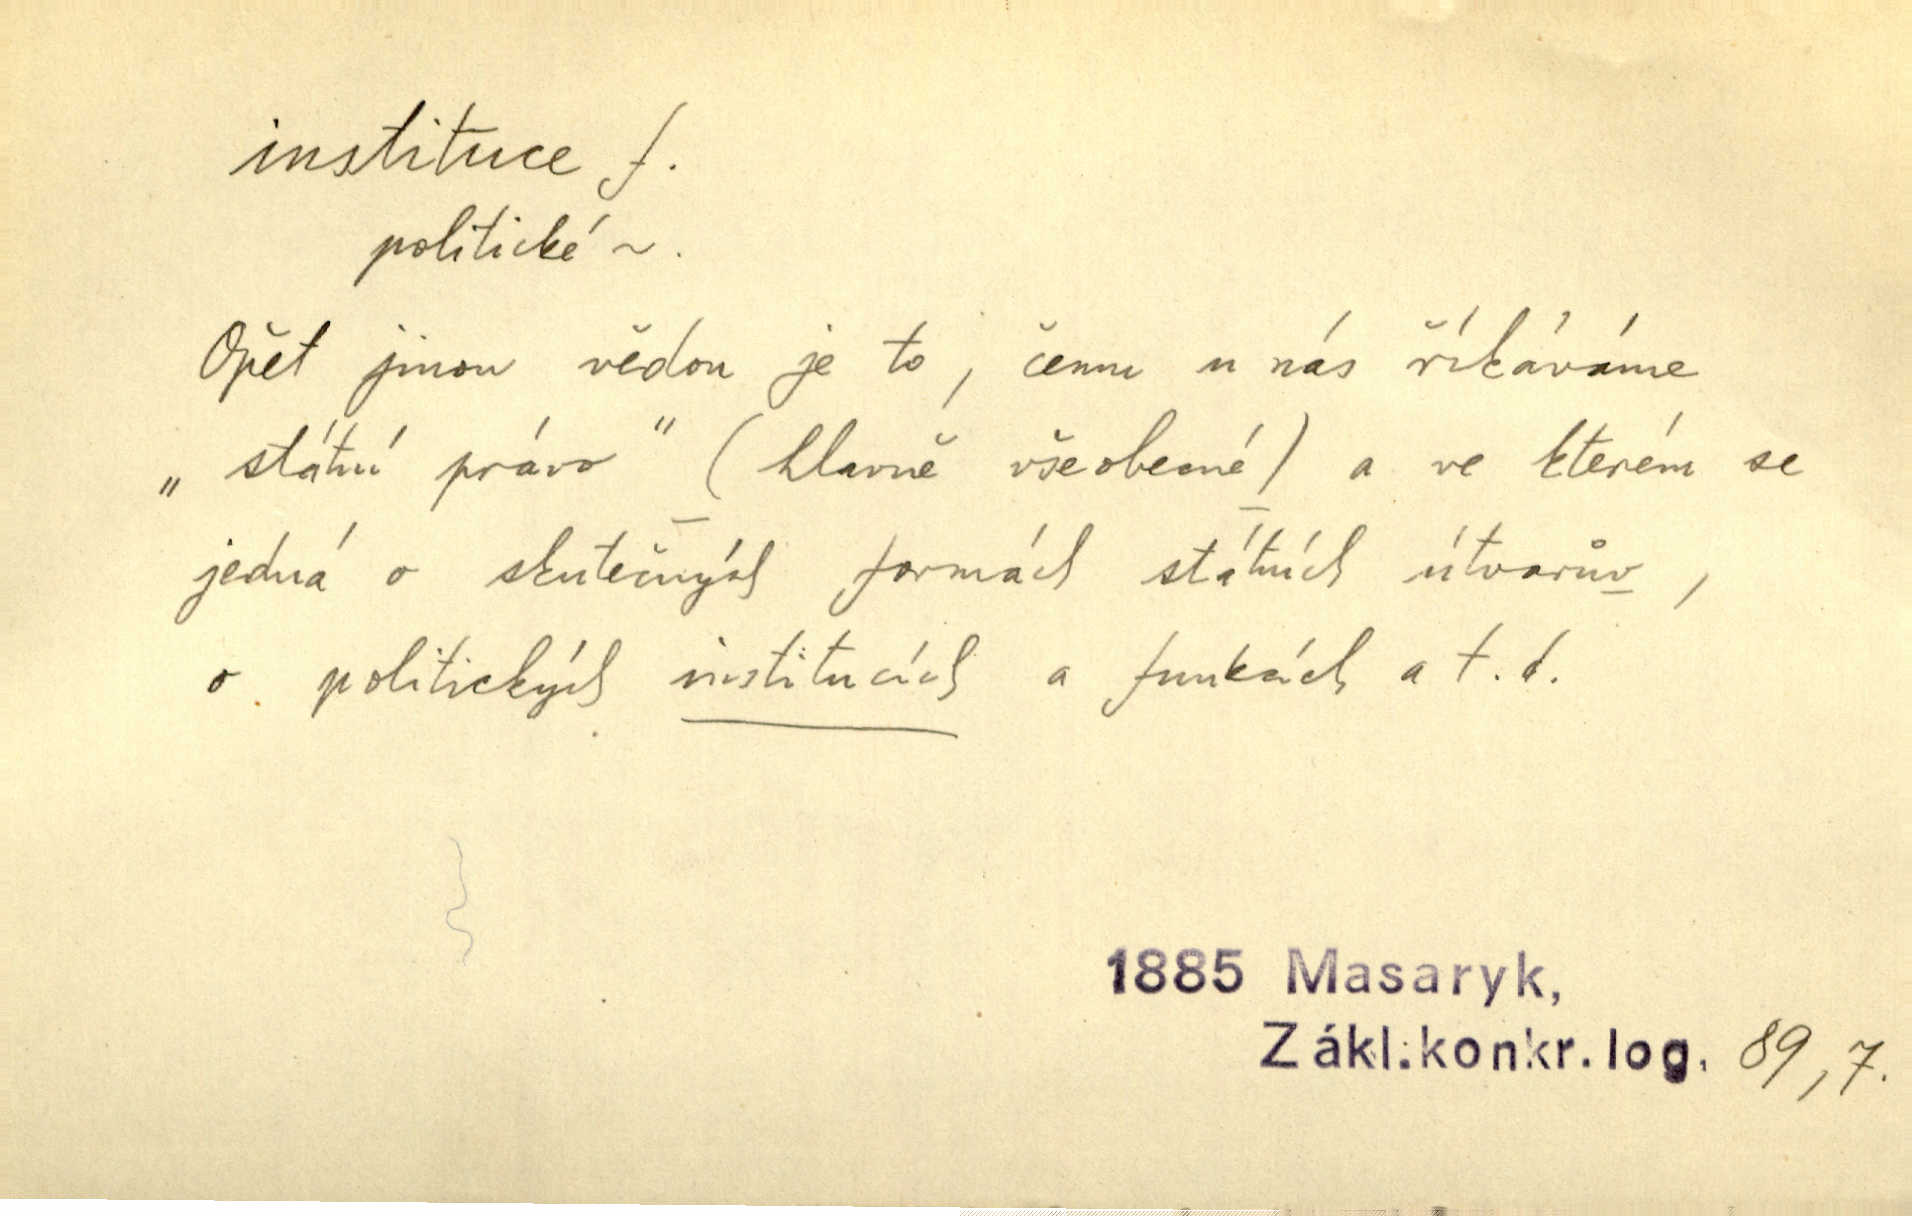 instituce f.
politické ~.
Opět jinou vědou je to, čemu u nás říkáváme
„státní právo" (hlavně všeobecné) a ve kterém se
jedná o skutečných formách státních útvarův,
o politických institucích a funkcích a t. d.
1885 Masaryk,
Zákl.konkr.log. 89,7.